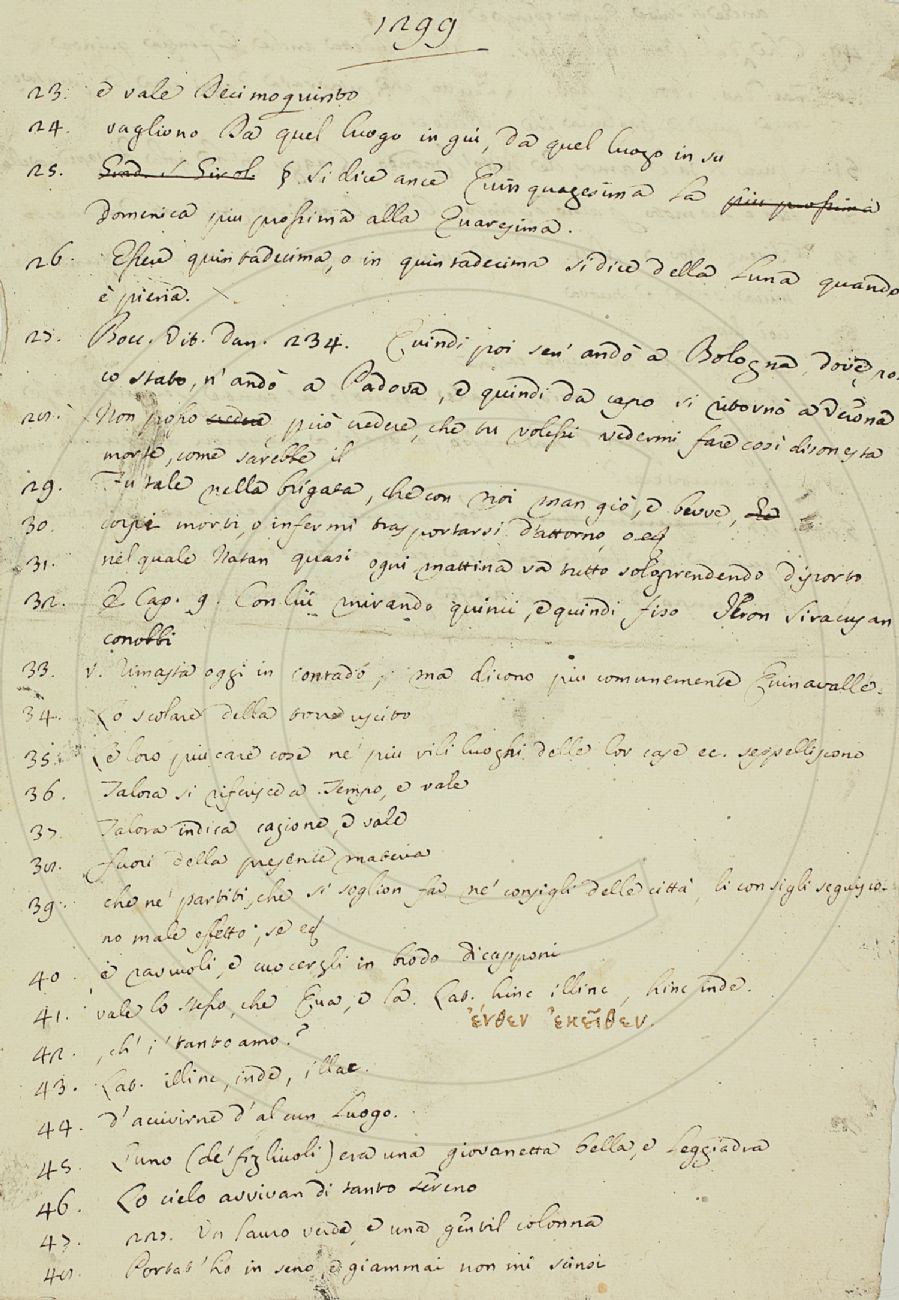 1299
23. e vale Decimoquinto
24. vagliono Da quel luogo in giù, da quel luogo in su
25. § Si dice ance Quinquagesima la più prossima
Domenica piu prossima alla Quaresima.
26. Esser quintadecima, o in quintadecima si dice della Luna quando
è piena.
27. Bocc. Vit. Dan. 234. Quindi poi sen' andò a Bologna, dove po-
co stato, n'andò a Padova, e quindi da capo si ritornò a Verona
28. Non posso credere, che tu volessi vedermi fare così disonesta
morte, come sarebbe il
29. Fu tale nella brigata, che con noi mangiò, e bevve,
30. corpi morti, o infermi trasportarsi d'attorno, o
31. nel quale Natan quasi ogni mattina va tutto solo prendendo diporto
32. E Cap. 9. Con lui mirando quinci, e quindi fiso Jeron Siracusan
conobbi
33. v. rimasta oggi in contado, ma dicono piu comunemente Quinavalle.
34. Lo scolare della torre uscito
35. Le loro piu care cose ne' piu vili luoghi delle lor case ec. seppelliscono
36. Talora si riferisce a Tempo, e vale
37. Talora indica cagione, e vale
38. fuori della presente materia
39. che ne' partiti, che si soglion far ne' consigli delle città, li consigli seguisco-
no male effetto, se
40. e raviuoli, e cuocergli in brodo di capponi
41. vale lo stesso, che Qua, e la. Lat. hinc illinc, hinc inde.
ἔνθεν ἐκεῖθεν.
42. , ch' i' tanto amo?
43. Lat. illinc, inde, illac.
44. d'accivirne d'alcun Luogo.
45. L'uno (de' figliuoli) era una giovanetta bella, e leggiadra
46. Lo cielo avvivan di tanto sereno
47. 227. Un lauro verde, e una gentil colonna
48. Portat' ho in seno, e giammai non mi scinsi